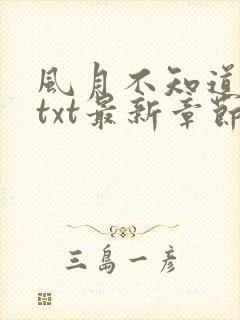 風月不知道
txt最新章節
三島一彥